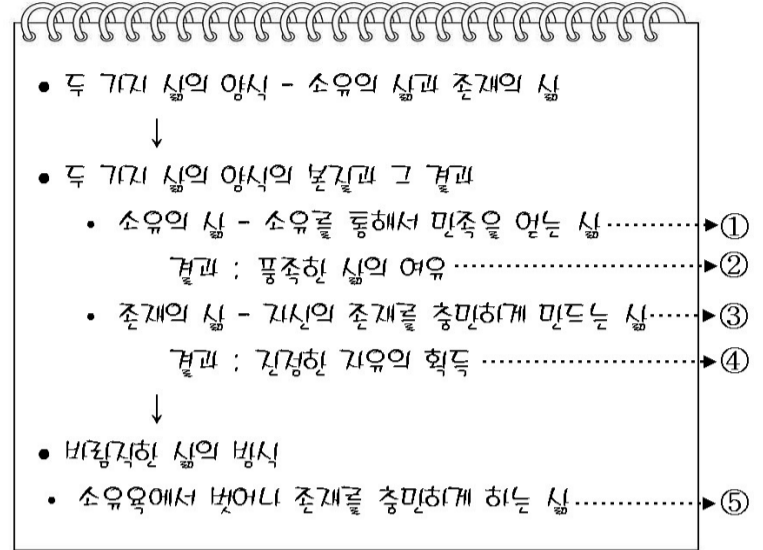 • 두 가지 삶의 양식 - 소유의 삶과 존재의 삶
↓
• 두 가지 삶의 양식의 본질과 그 결과
• 소유의 삶 - 소유를 통해서 만족을 얻는 삶 ············▶①
결과 : 풍족한 삶의 여유 ············▶②
• 존재의 삶 - 자신의 존재를 충만하게 만드는 삶 ······▶③
결과 : 진정한 자유의 획득 ············▶④
↓
• 바람직한 삶의 방식
• 소유욕에서 벗어나 존재를 충만하게 하는 삶 ············▶⑤